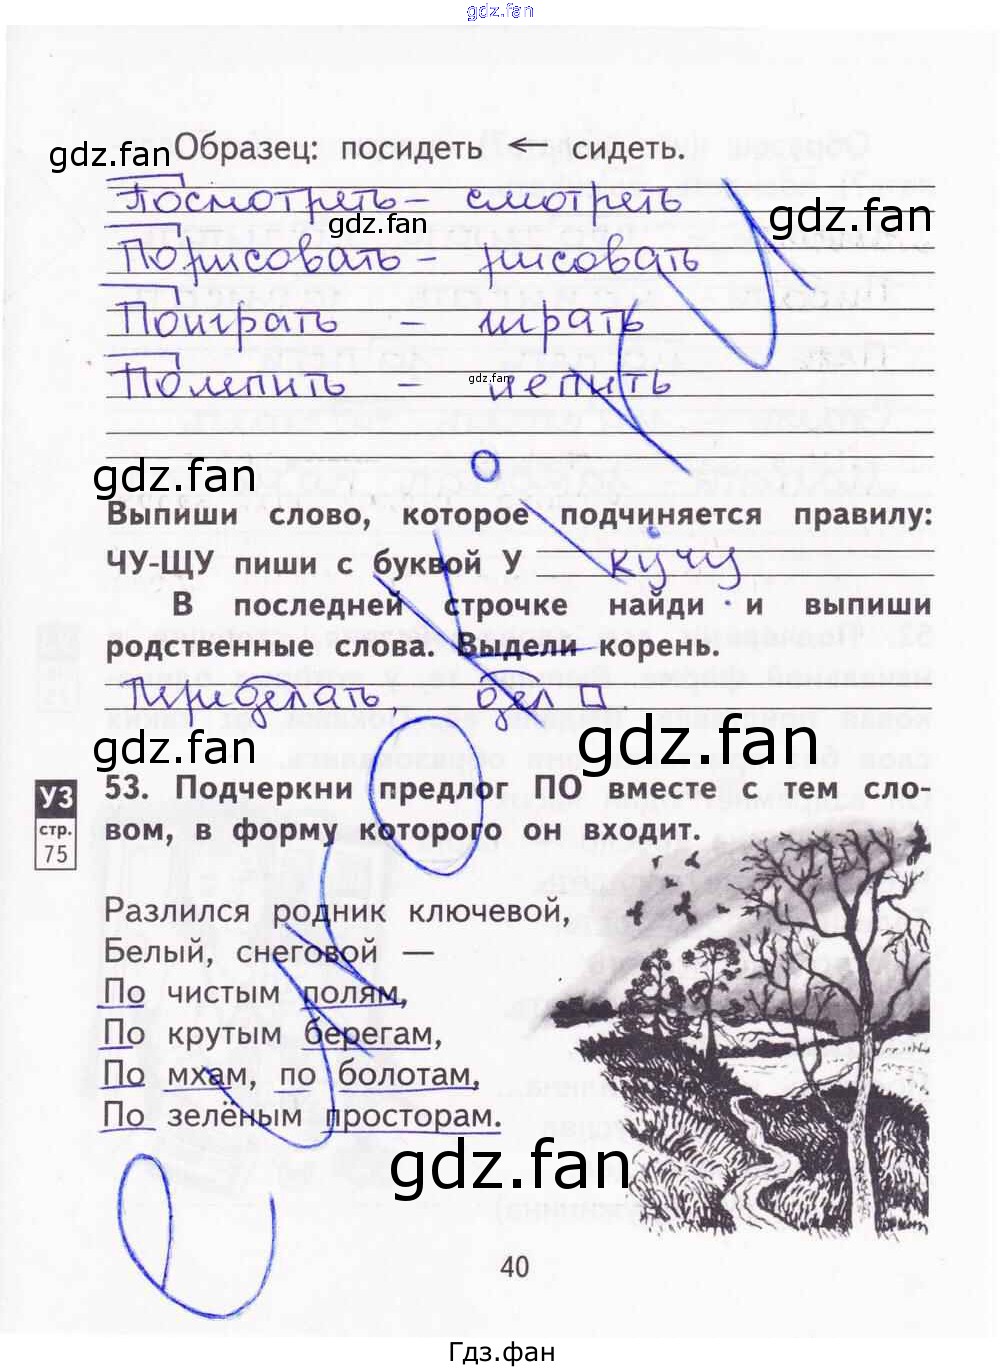 gdz.fan
gdz.fan Образец: посидеть ← сидеть.
Посмотреть - смотреть
gdz.fan
gdz.fan
Порисовать - рисовать
Поиграть - играть
Полепить - лепить
gdz.fan
gdz.fan
Выпиши слово, которое подчиняется правилу:
ЧУ-ЩУ пиши с буквой У кучу
В последней строчке найди и выпиши
родственные слова. Выдели корень.
Переделать, дел
gdz.fan
gdz.fan
УЗ
стр.
75
53. Подчеркни предлог ПО вместе с тем сло-
вом, в форму которого он входит.
Разлился родник ключевой,
Белый, снеговой —
По чистым полям,
По крутым берегам,
По мхам, по болотам,
По зелёным просторам.
gdz.fan
40
Гдз.фан